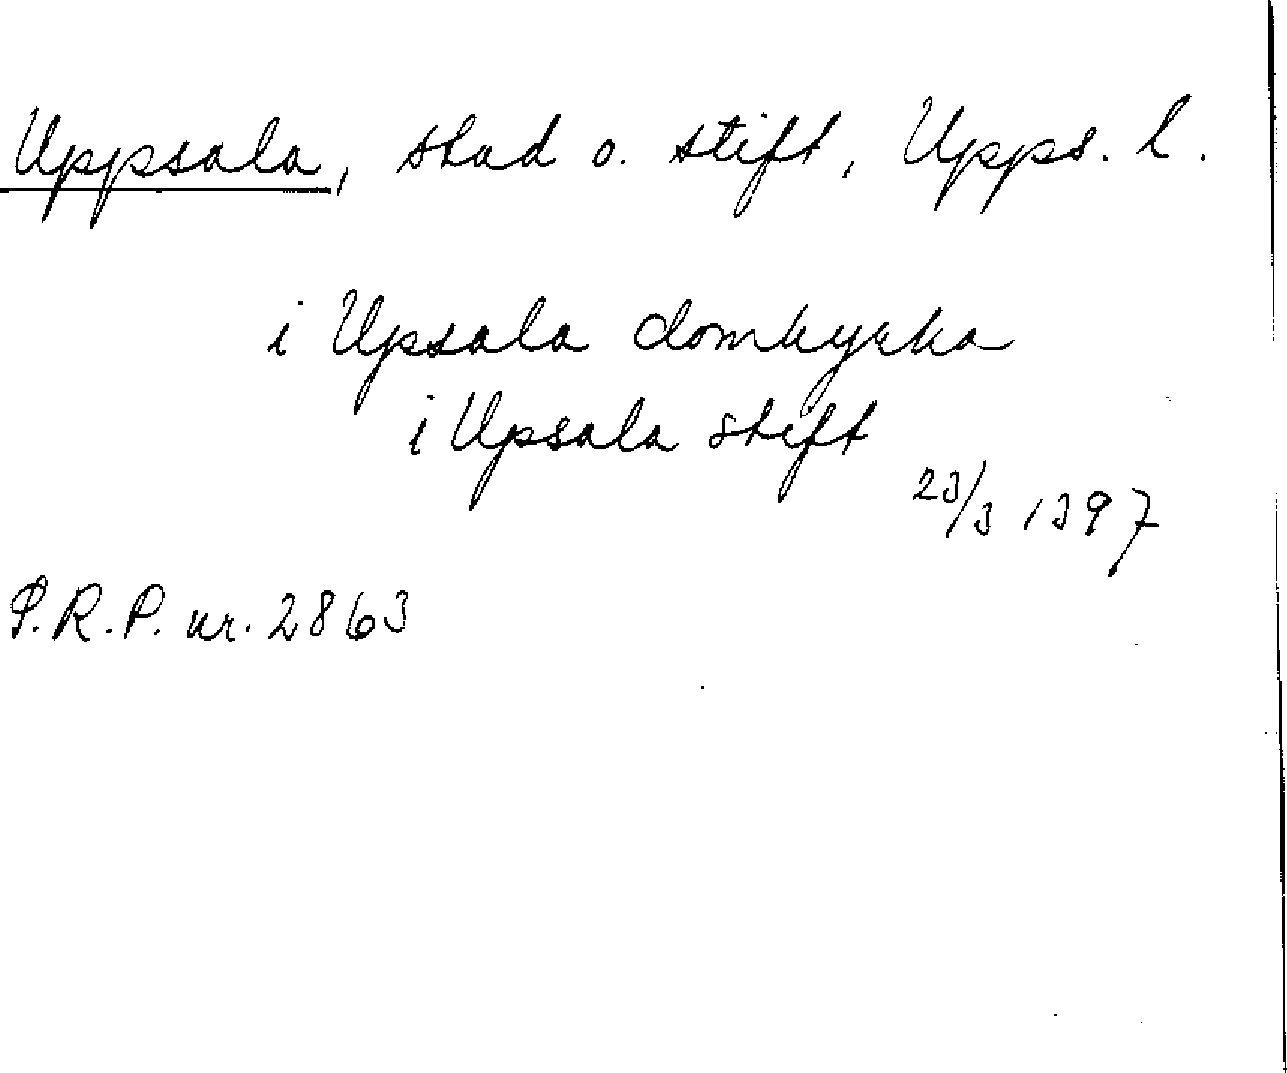 Uppsala, stad o. stift, Upps. l.
i Upsala domkyrka
i Upsala stift
23/3 1397
P.R.P. nr. 2863